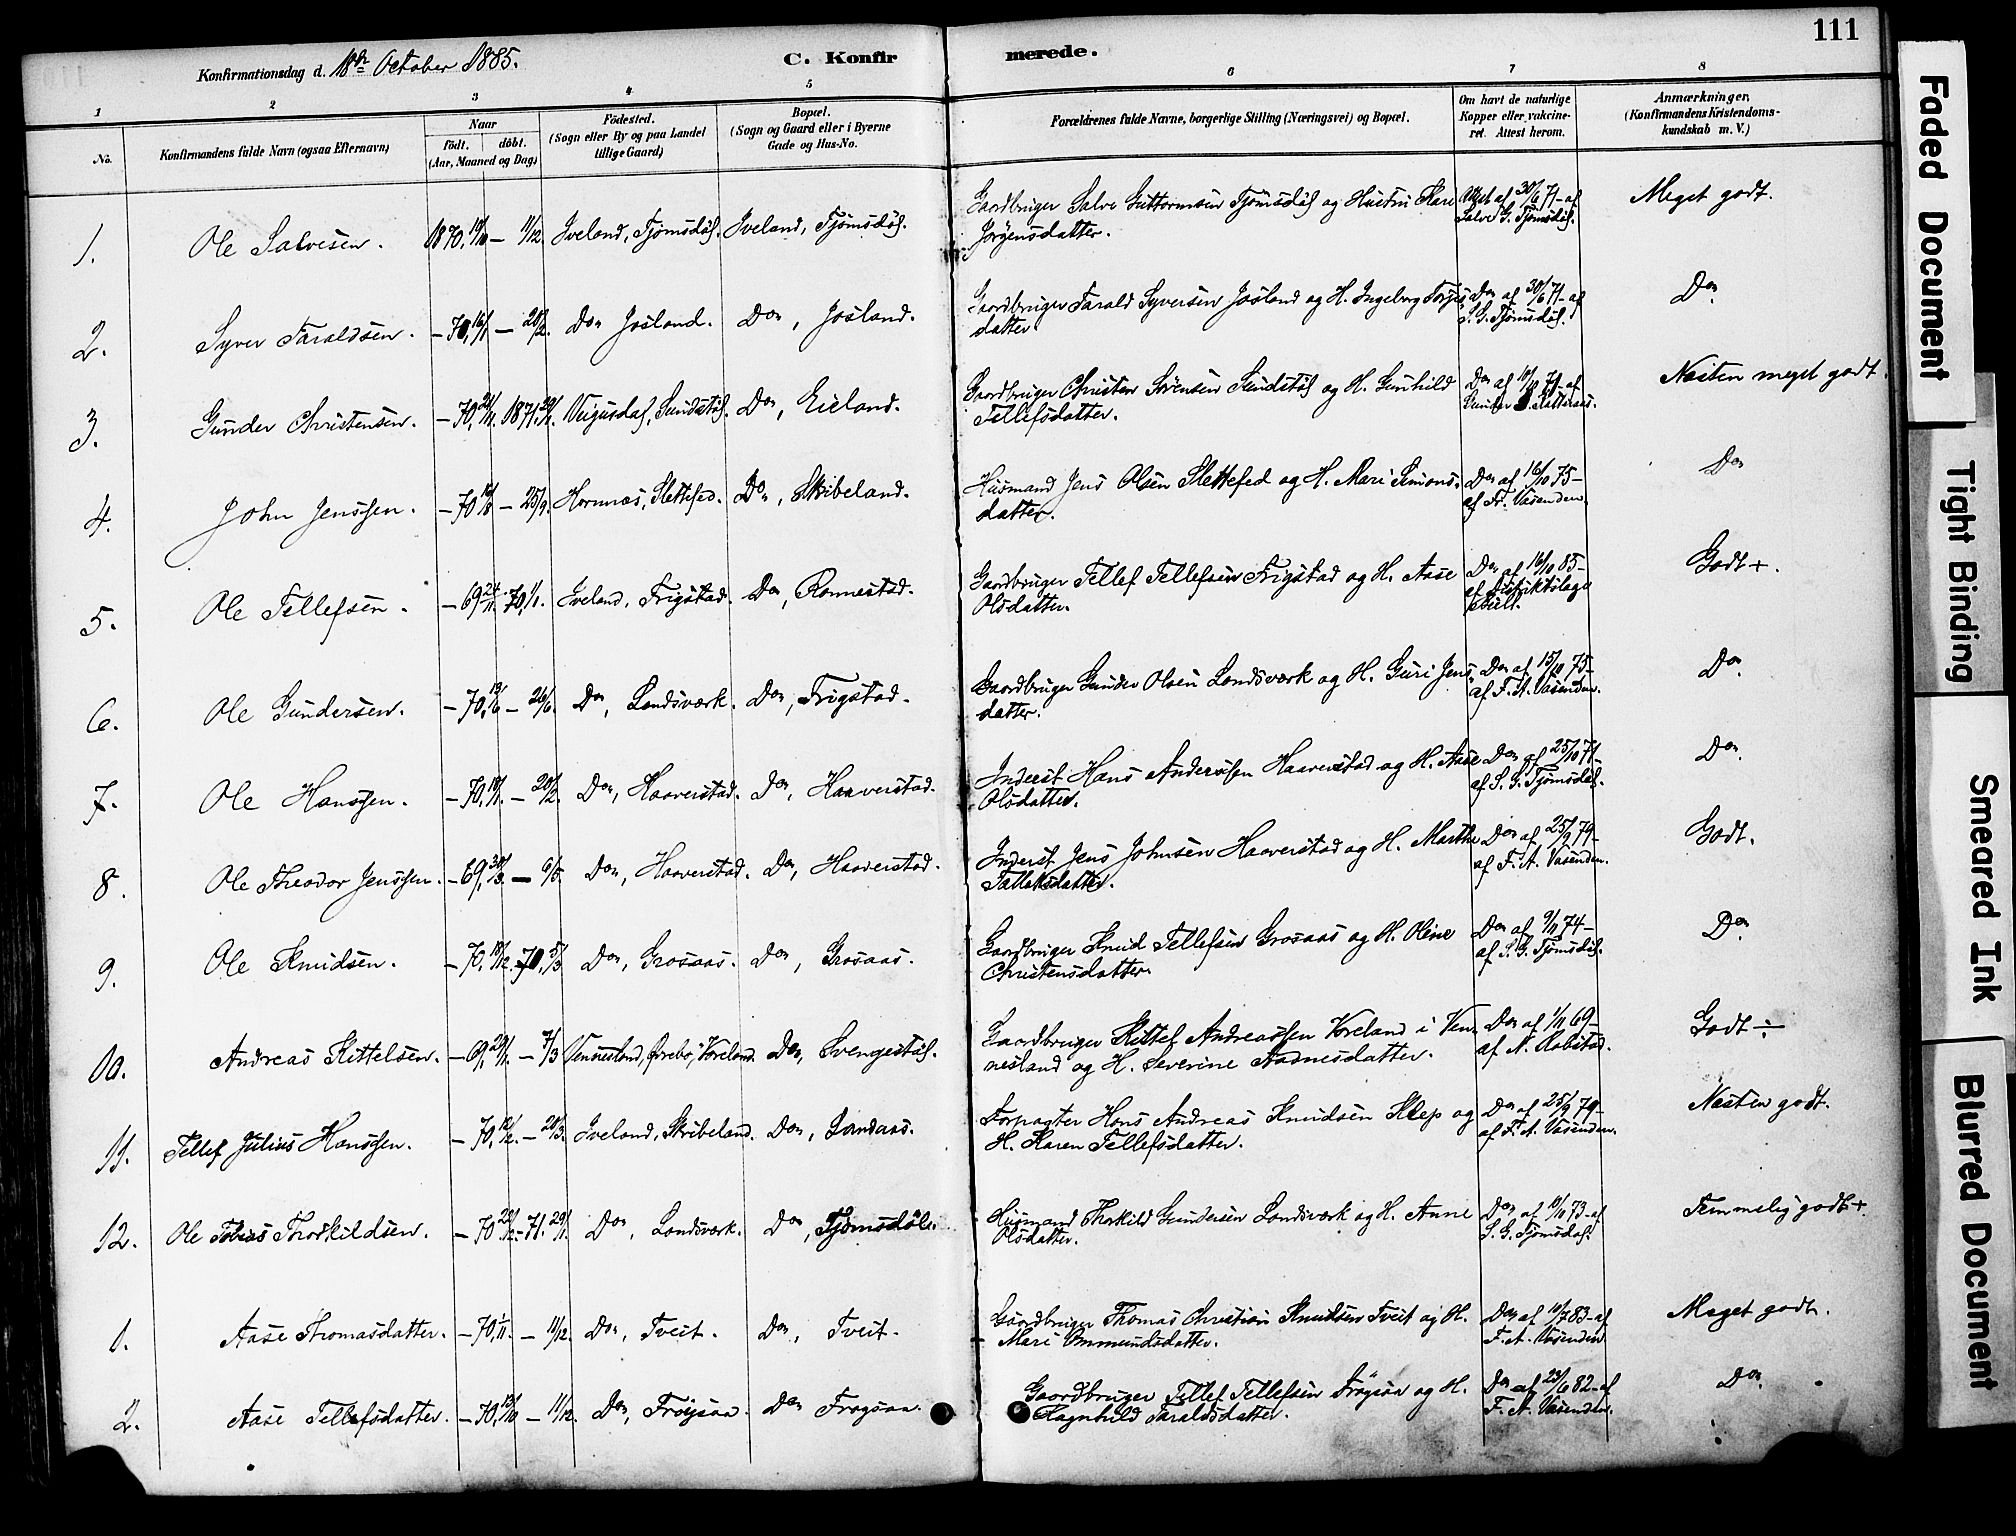 111
Konfirmationsdag d. 18de October 1885.
C. Konfirmerede.
1 2 3 4 5 6 7 8
No.
Konfirmandens fulde Navn (ogsaa Efternavn)
Naar
födt. döbt.
(Aar, Maaned og Dag)
Födested.
(Sogn eller By og paa Landet
tillige Gaard)
Bopæl.
(Sogn og Gaard eller i Byerne
Gade og Hus-No.
Forældrenes fulde Navne, borgerlige Stilling (Næringsvei) og Bopæl.
Om havt de naturlige
Kopper eller vakcine-
ret. Attest herom.
Anmærkninger.
(Konfirmandens Kristendoms-
kundskab m. V.)
1. Ole Salvesen. 1870, 19/10 – 11/12. Iveland, Tjömsdöl. Iveland, Tjömsdöl. Gaardbruger Salve Guttormsen Tjömsdöl og Hustru Kari Attest af 30/6 71 – af Meget godt.
Jörgensdatter. Salve G. Tjömsdöl.
2. Syver Taraldsen. – 70, 16/1 – 20/2. Do, Josland. Do, Josland. Gaardbruger Tarald Syversen Josland og H. Ingeborg Torjus- Do af 30/6 71 – af Do
datter S. G. Tjömsdöl.
3. Gunder Christensen. – 70, 21/11. 1871, Veigusdal, Sundstöl. Do, Eieland. Gaardbruger Christen Sörensen Sundstöl og H. Gunhild Do af 11/10 71 – af Næsten meget godt.
Tellefsdatter. Gunder
4. John Jenssen. – 70 – 25/9. Hornnæs, Slettefed. Do, Skibeland. Husmand Jens Olsen Slettefed og H. Mari Simons- Do af 16/10 75 – Do
datter. af Fr. Vasenden.
5. Ole Tellefsen. – 69, 24/11. 70, 1/1. Iveland, Frigstad. Do, Ronnestad. Gaardbruger Tellef Tellefsen Frigstad og H. Aase Do af 16/10 85 – Godt +.
Olsdatter. af Distriktslæge
6. Ole Gundersen. – 70, 13/6 – 26/6. Do, Landsværk. Do, Frigstad. Gaardbruger Gunder Olsen Landsværk og H. Guri Jens- Do af 15/10 75 – Do
datter. af F. A. Vasenden.
7. Ole Hanssen. – 70, 18/1. – 20/2. Do, Haaverstad. Do, Haaverstad. Inderst Hans Anderssen Haaverstad og H. Aase Do af 25/10 71 – Do
Olsdatter. af S. G. Tjömsdöl.
8. Ole Theodor Jenssen. – 69, 30/3. – 6/5. Do, Haaverstad. Do, Haaverstad. Inderst Jens Johnsen Haaverstad og H. Marthe Do af 25/9 79 – Godt.
Tallaksdatter. af F. A. Vasenden.
9. Ole Knudsen. – 70, – 70, 5/3 Do, Grosaas. Do, Grosaas. Gaardbruger Knud Tellefsen Grosaas og H. Oline Do af 9/11 74 – Do
Christensdatter. af S. G. Tjömsdöl.
10. Andreas Kittelsen. – 69, 29/1. – 7/3 Vennesland, Övrebö, Voreland. Do, Svengestöl. Gaardbruger Kittel Andreassen Voreland i Ven- Do af 1/11 69 – Godt ÷
nesland og H. Severine Aadnesdatter. af N. Aabstad.
11. Tellef Julius Hanssen. – 70, 12/2. – 20/3. Iveland, Skibeland. Do, Landaas. Forpagter Hans Andreas Knudsen Klep og Do af 25/9 79 – Næsten godt.
H. Karen Tellefsdatter. af F. A. Vasenden.
12. Ole Tobias Thorkildsen. – 70 22/12. – 71. 29/1. Do, Landsværk. Do, Tjömsdöl. Husmand Thorkild Gundersen Landsværk og H. Anne Do af 11/10 73 – af Temmelig godt +.
Olsdatter. S. G. Tjömsdöl.
1. Aase Thomasdatter. – 70, 1/11. – 11/12. Do, Tveit. Do, Tveit. Gaardbruger Thomas Christian Knudsen Tveit og H. Do af 10/7 83 – af Meget godt.
Mari Ommundsdatter. F. A. Vasenden
2. Aase Tellefsdatter. – 70, 13/10 – 11/12. Do, Fröysaa. Do Fröysaa. Gaardbruger Tellef Tellefsen Fröysaa og H. Do af 23/6 82 – af Do
Ragnhild Taraldsdatter. F. A. Vasenden.
Faded Document
Tight Binding
Smeared Ink
Blurred Document